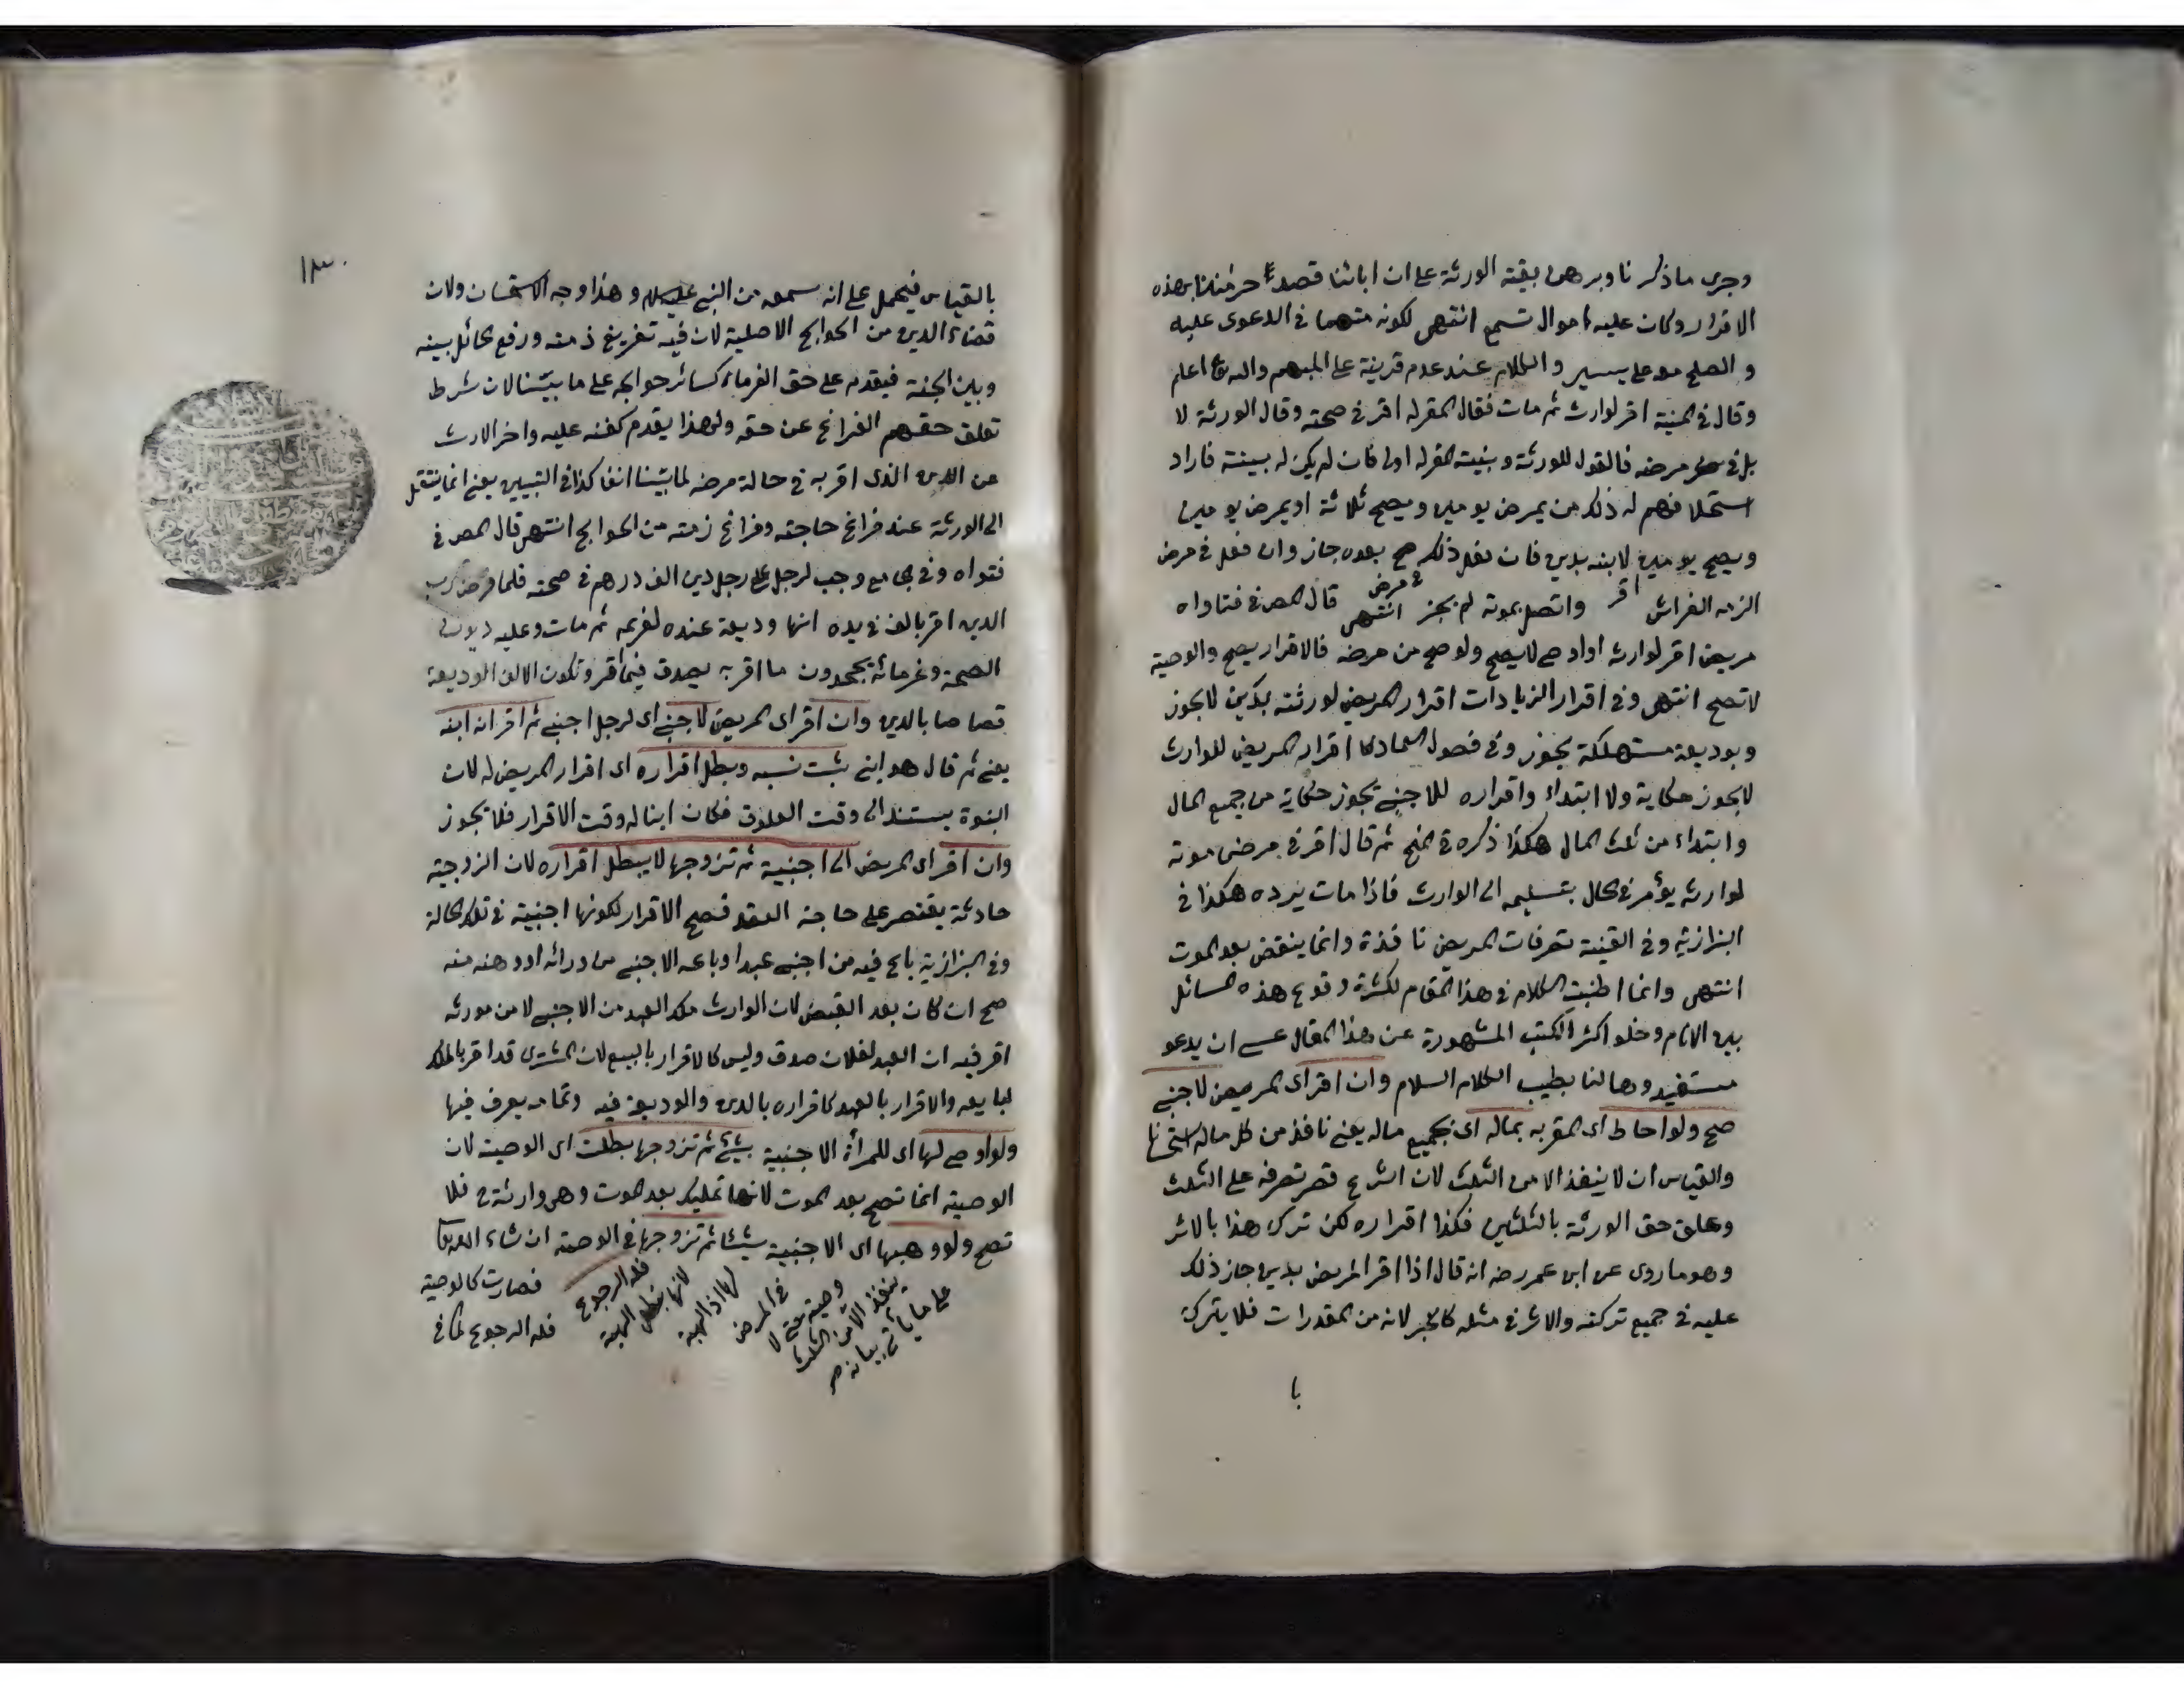 وجرى ما ذكرنا وبرهن بقية الورثة على ان ابانا قصد حرماننا بهذه
الاقرار وكان عليه اموال تسمع انتهى لكونه متهما في الدعوى عليه
و الصلح معه على يسير و الكلام عند عدم قرينة على المبهم والله اعلم
وقال في المنية اقر لوارث ثم مات فقال المقر له اقر في صحته وقال الورثة لا
بل في مرضه فالقول للورثة وبنية المقر له اولى فان لم يكن له بينة فاراد
استحلافهم له ذلك من يمرض يومين ويصح ثلاثة او يمرض يومين
ويصح يومين لابنه بدين فان فعل ذلك صح بعده جاز وان فعل في مرض
الزمه الفراش اقر واتصل بموته لم يجز انتهى قال المص في فتاواه
مريض اقر لوارثه او اوصى لا يصح ولو صح من مرضه فالاقرار يصح والوصية
لا تصح انتهى وفي اقرار الزيادات اقرار المريض لورثته بدين لا يجوز
وبوديعة مستهلكة يجوز وفي فصول العمادى اقرار المريض للوارث
لا يجوز حكاية ولا ابتداء واقراره للاجنبي يجوز حكاية من جميع المال
وابتداء من ثلث المال هكذا ذكره في المنح ثم قال اقر في مرض موته
لوارثه يؤمر في الحال بتسليمه الى الوارث فاذا مات يرده هكذا في
البزازية وفي القنية تصرفات المريض نافذة وانما ينقض بعد الموت
انتهى وانما اطنبت الكلام في هذا المقام لكثرة وقوع هذه المسائل
بين الانام وخلو اكثر الكتب المشهورة عن هذا المقال عسى ان يدعو
مستفيدوها لنا بطيب الكلام السلام وان اقر اى المريض لاجنبي
صح ولو احاط اى المقر به بماله اى بجميع ماله يعني نافذ من كل ماله استحسانا
والقياس ان لا ينفذ الا من الثلث لان الشرع قصر تصرفه على الثلث
وعلق حق الورثة بالثلثين فكذا اقراره لكن ترك هذا بالاثر
وهو ما روى عن ابن عمر رضه انه قال اذا اقر المريض بدين جاز ذلك
عليه في جميع تركته والاثر في مثله كالخبر لانه من المقدرات فلا يتركه
با
١٣٠
بالقياس فيحمل على انه سمعه من النبي عليه السلام و هذا وجه الاستحسان ولان
قضاء الدين من الحوايج الاصلية لان فيه تفريغ ذمته ورفع الحائل بينه
وبين الجنة فيقدم على حق الغرماء كسائر حوايجه على ما بيّنا لان شرط
تعلق حقهم الفراغ عن حقه ولهذا يقدم كفنه عليه واخر الارث
عن الدين الذى اقر به في حالة مرضه لما بيّنا انفا كذا في التبيين يعني انما ينتقل
الى الورثة عند فراغ حاجته وفراغ ذمته من الحوايج انتهى قال المص في
فتواه وفي وجب لرجل على رجل دين الف درهم في صحته فلما مرض رب
الدين اقر بالف في يده انها وديعة عنده لغريمه ثم مات وعليه ديون
الصحة وغرمائه يجحدون ما اقر به يصدق فيما اقر وتكون الالف الوديعة
قصاصا بالدين وان اقر اى المريض لاجنبي اى لرجل اجنبي ثم اقر انه ابنه
يعني ثم قال هو ابني يثبت نسبه وبطل اقراره اى اقرار المريض له لان
البنوة يستند الى وقت العلوق فكان ابنا له وقت الاقرار فلا يجوز
وان اقر اى المريض الى اجنبية ثم تزوجها لا يبطل اقراره لان الزوجية
حادثة يقتصر على حاجة العقد فصح الاقرار لكونها اجنبية في تلك الحالة
وفي البزازية باع فيه من اجنبي عبدا وباعه الاجنبي من وارثه او وهبه منه
صح ان كان بعد القبض لان الوارث ملك العبد من الاجنبي لا من مورثه
اقر فيه ان العبد لفلان صدق وليس كالاقرار بالبيع لان المشترى قد اقر بالملك
لبايعه والاقرار بالعبد كاقراره بالدين والوديعة فيه وتمامه يعرف فيها
ولو اوصى لها اى للمرأة الاجنبية بشيء ثم تزوجها بطلت اى الوصية لان
الوصية انما تصح بعد الموت لانها تمليك بعد الموت وهي وارثة ح فلا
تصح ولو وهبها اى الاجنبية شيئا ثم تزوجها في الوصية ان شاء الله تعالى
فله الرجوع
لانها تبطل الهبة
لها اذ الهبة
في المرض
وصية حتى لا
ينفذ الا من الثلث
على ما يأتي بيانه ص
فصارت كالوصية
فله الرجوع كما في